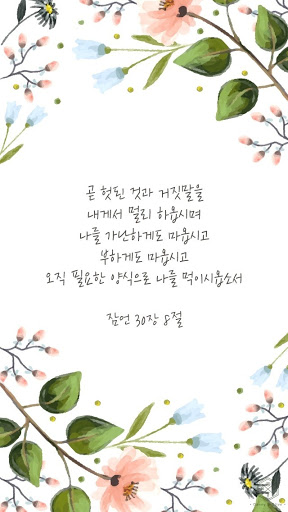 곧 헛된 것과 거짓말을
내게서 멀리 하옵시며
나를 가난하게도 마옵시고
부하게도 마옵시고
오직 필요한 양식으로 나를 먹이시옵소서
잠언 30장 8절